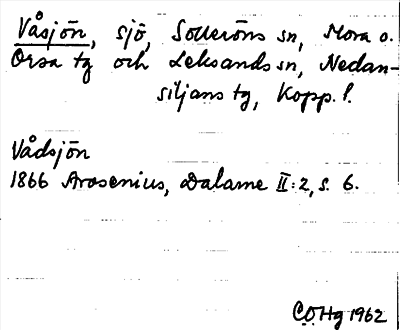 Våsjön, sjö, Solleröns sn, Mora o.
Orsa tg och Leksands sn, Nedan-
siljans tg, Kopp. l.
Vådsjön
1866 Arosenius, Dalarne II:2, s. 6.
C.O.Hg 1962